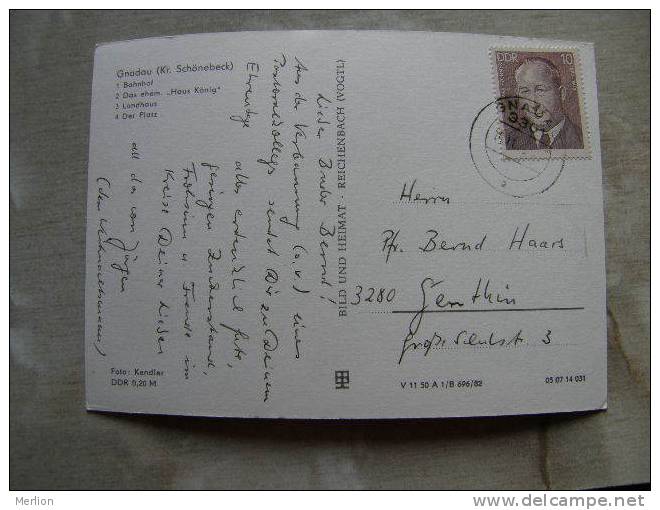 Gnadau (Kr. Schönebeck)
1 Bahnhof
2 Das ehem. „Haus König“
3 Landhaus
4 Der Platz
Lieber Bruder Bernd!
Aus der Verbannung eines
Pastoralkollegs sendet Dir zu Deinem
Ehrentage
alles erdenklich Gute,
Frohsinn u. Freude im
Kreise Deiner Lieben
all da von Jürgen
BILD UND HEIMAT · REICHENBACH (VOGTL)
DDR 10
GNADAU
Herrn
Pfr. Bernd Haars
3280 Genthin
Große Schulstr. 3
Foto: Kendler
DDR 0,20 M
V 11 50 A 1/B 696/82
05 07 14 031
Merlion
www.delcampe.net